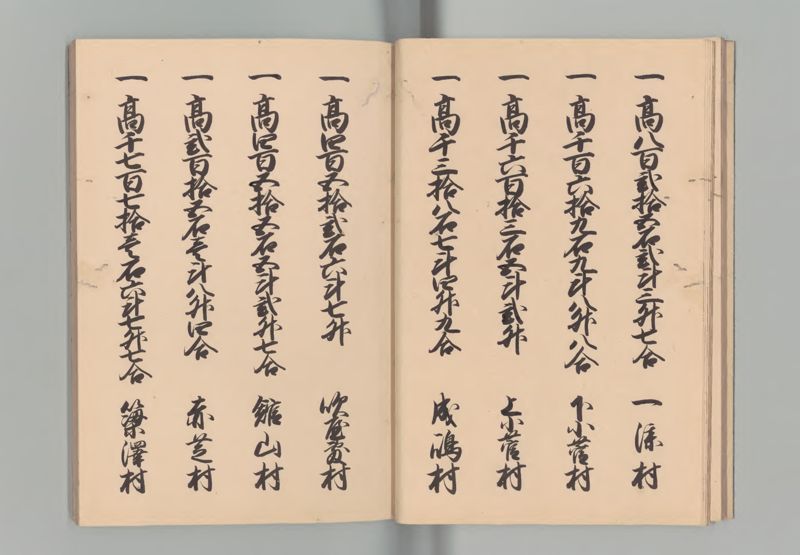 一 高八百弐拾五石弐斗三升七合 一漆村
一 高千百六拾九石九斗八升八合 下小菅村
一 高千六百拾三石五斗弐升 上小菅村
一 高千三拾八石七斗四升九合 成嶋村
一 高四百五拾弐石六斗七升 吹屋敷村
一 高四百五拾五石五斗弐升七合 舘山村
一 高弐百拾五石壱斗八升四合 赤芝村
一 高千七百七拾壱石六斗七升七合 簗澤村